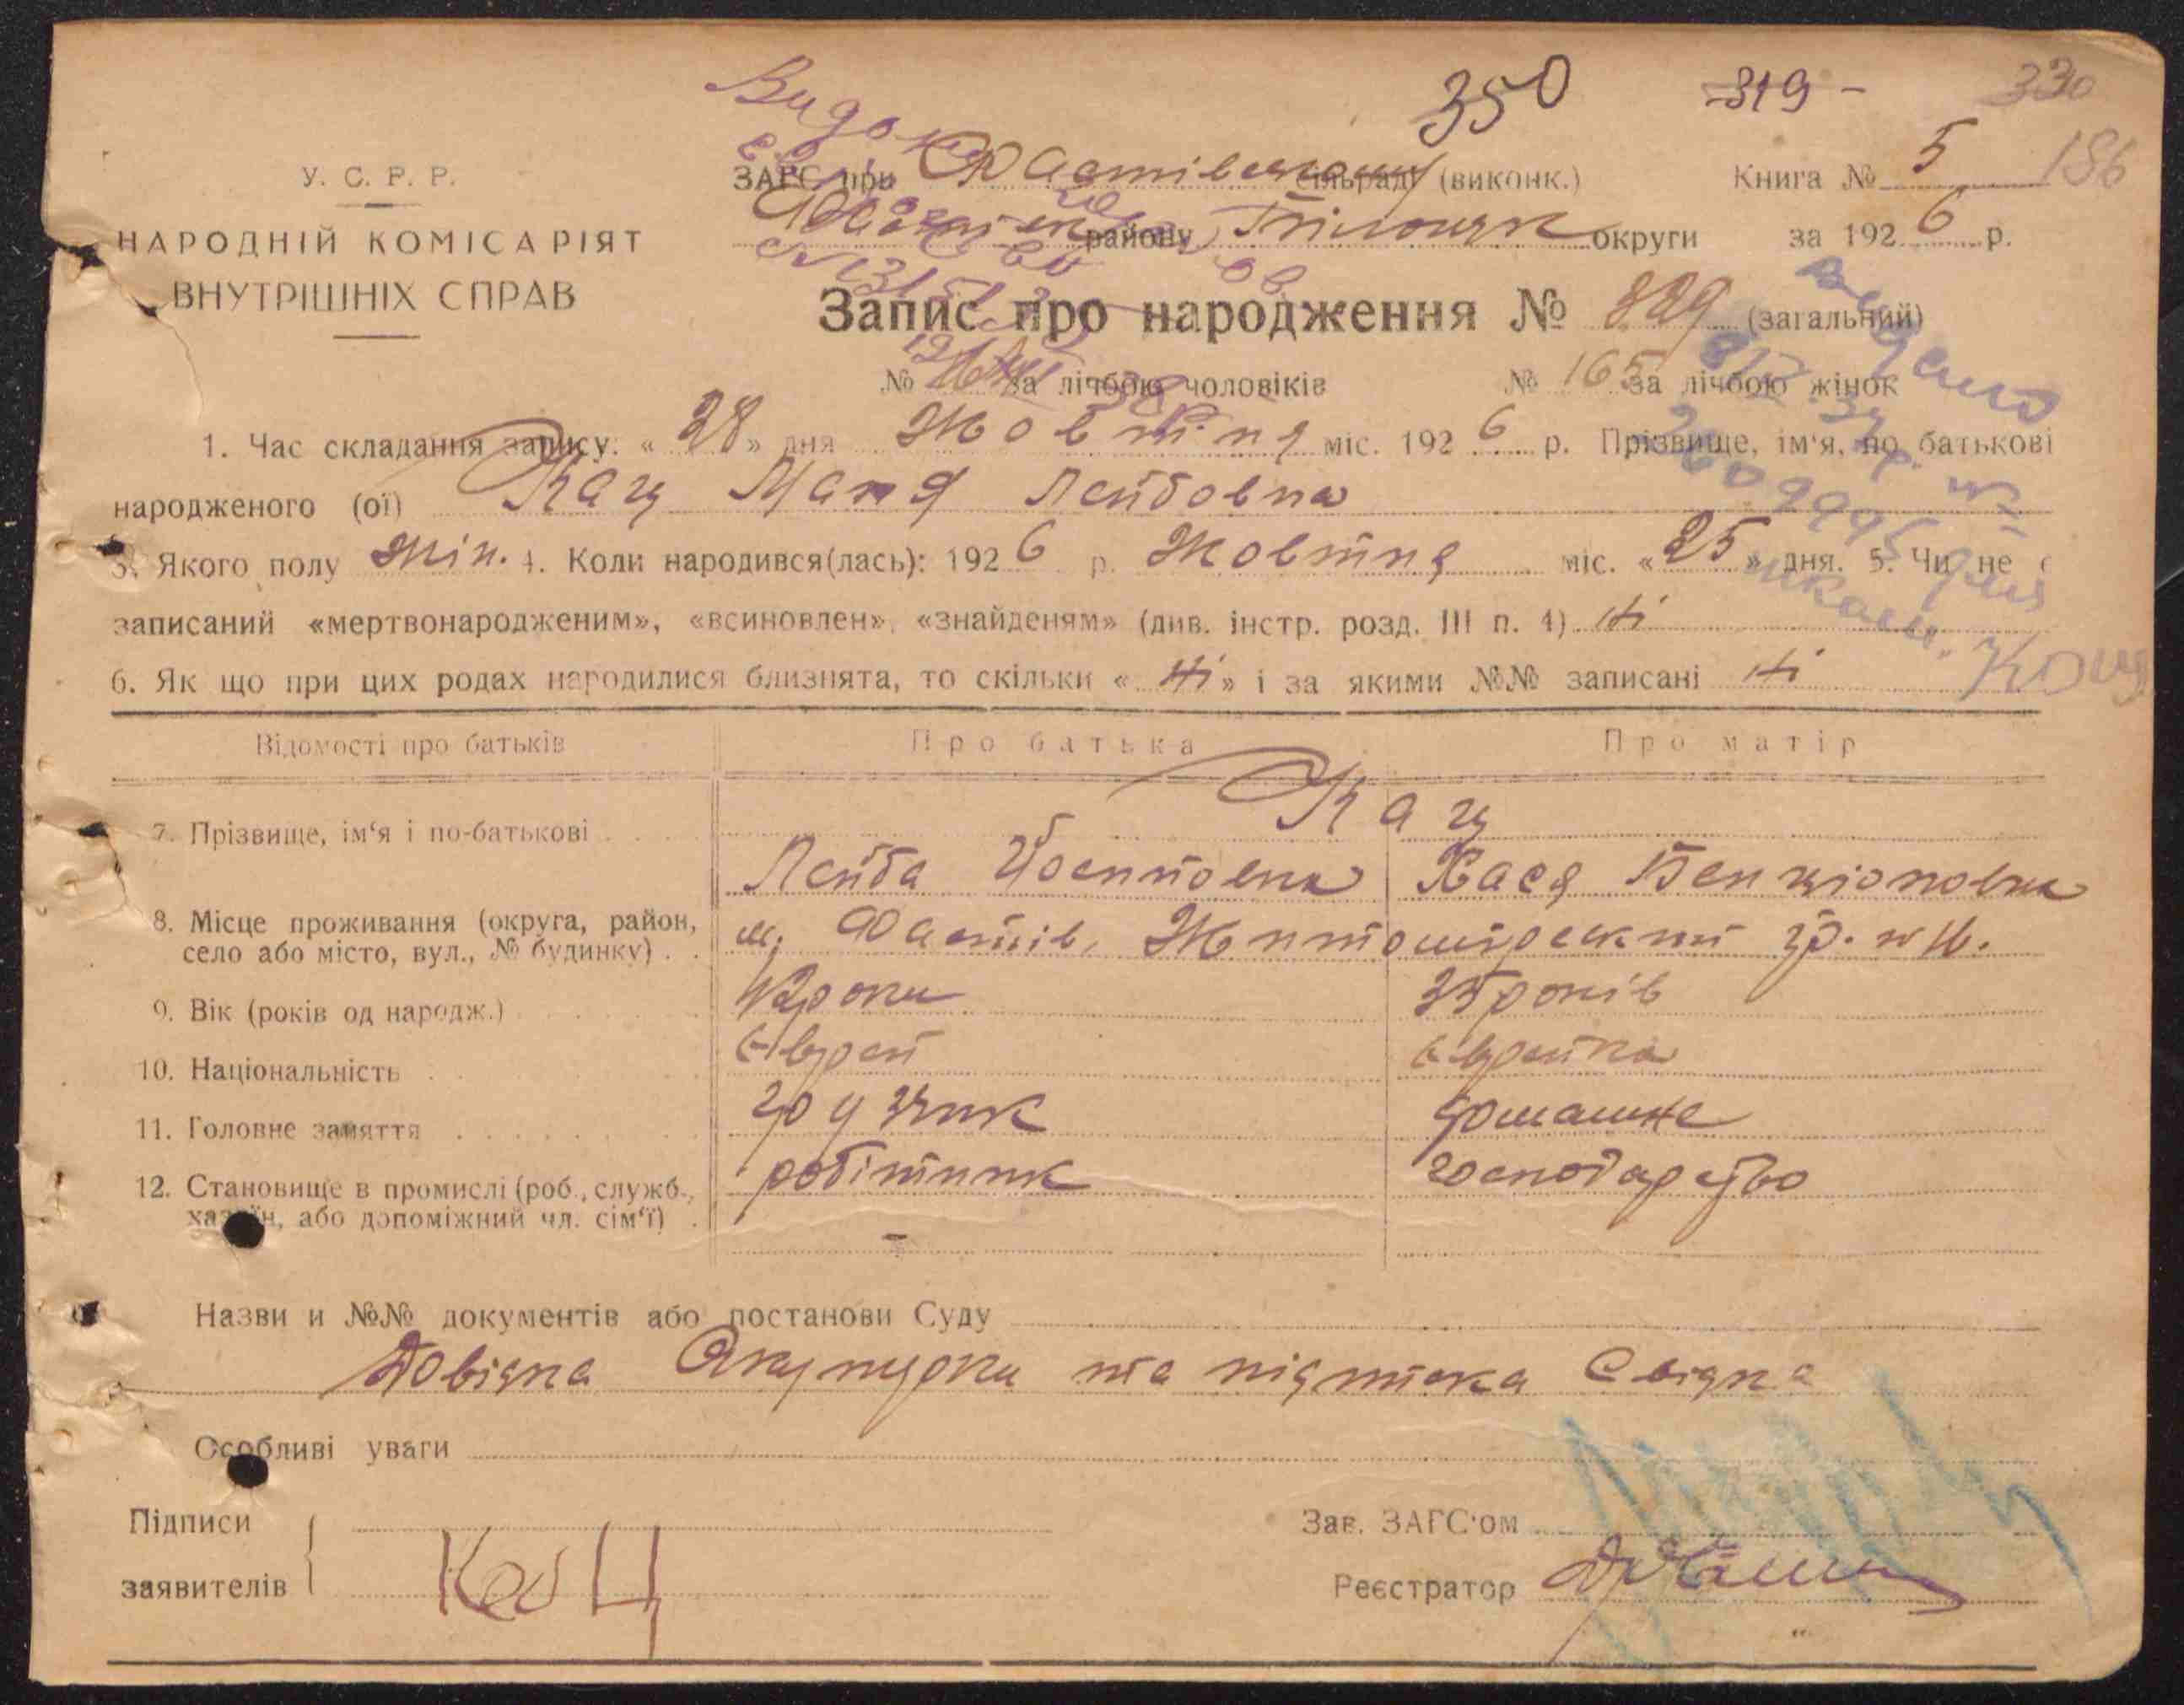 350 - 319 - 330
У. С. Р. Р.
НАРОДНІЙ КОМІСАРІЯТ
ВНУТРІШНІХ СПРАВ
ЗАГС при Фастівському сільраді (виконк.) Книга № 5 186
району Білоцерк округи за 1926 р.
Запис про народження № 329 (загальний)
№ за лічбою чоловіків № 165 за лічбою жінок
1. Час складання запису: «28» дня Жовтня міс. 1926 р. Прізвище, ім'я, по батькові
народженого (ої) Кац Маня Лейбовна
3. Якого полу жін. 4. Коли народився(лась): 1926 р. Жовтня міс. «25» дня. 5. Чи не є
записаний «мертвонародженим», «всиновлен», «знайденям» (див. інстр. розд. III п. 4) Ні
6. Як що при цих родах народилися близнята, то скільки «Ні» і за якими №№ записані Ні
Відомості про батьків Про батька Про матір
7. Прізвище, ім'я і по-батькові Кац
Лейба Бенціоновна
8. Місце проживання (округа, район, село або місто, вул., № будинку) м. Фастів,
9. Вік (років од народж.) 42 роки 35 років
10. Національність Єврей Єврейка
11. Головне заняття грузчик домашнє
12. Становище в промислі (роб., служб., робітник господарство
хазяїн, або допоміжний чл. сім'ї) -
Назви и №№ документів або постанови Суду
Довідка Акушурки та підписка Свідка
Особливі уваги
Підписи
заявителів Кац
Зав. ЗАГС'ом
Реєстратор